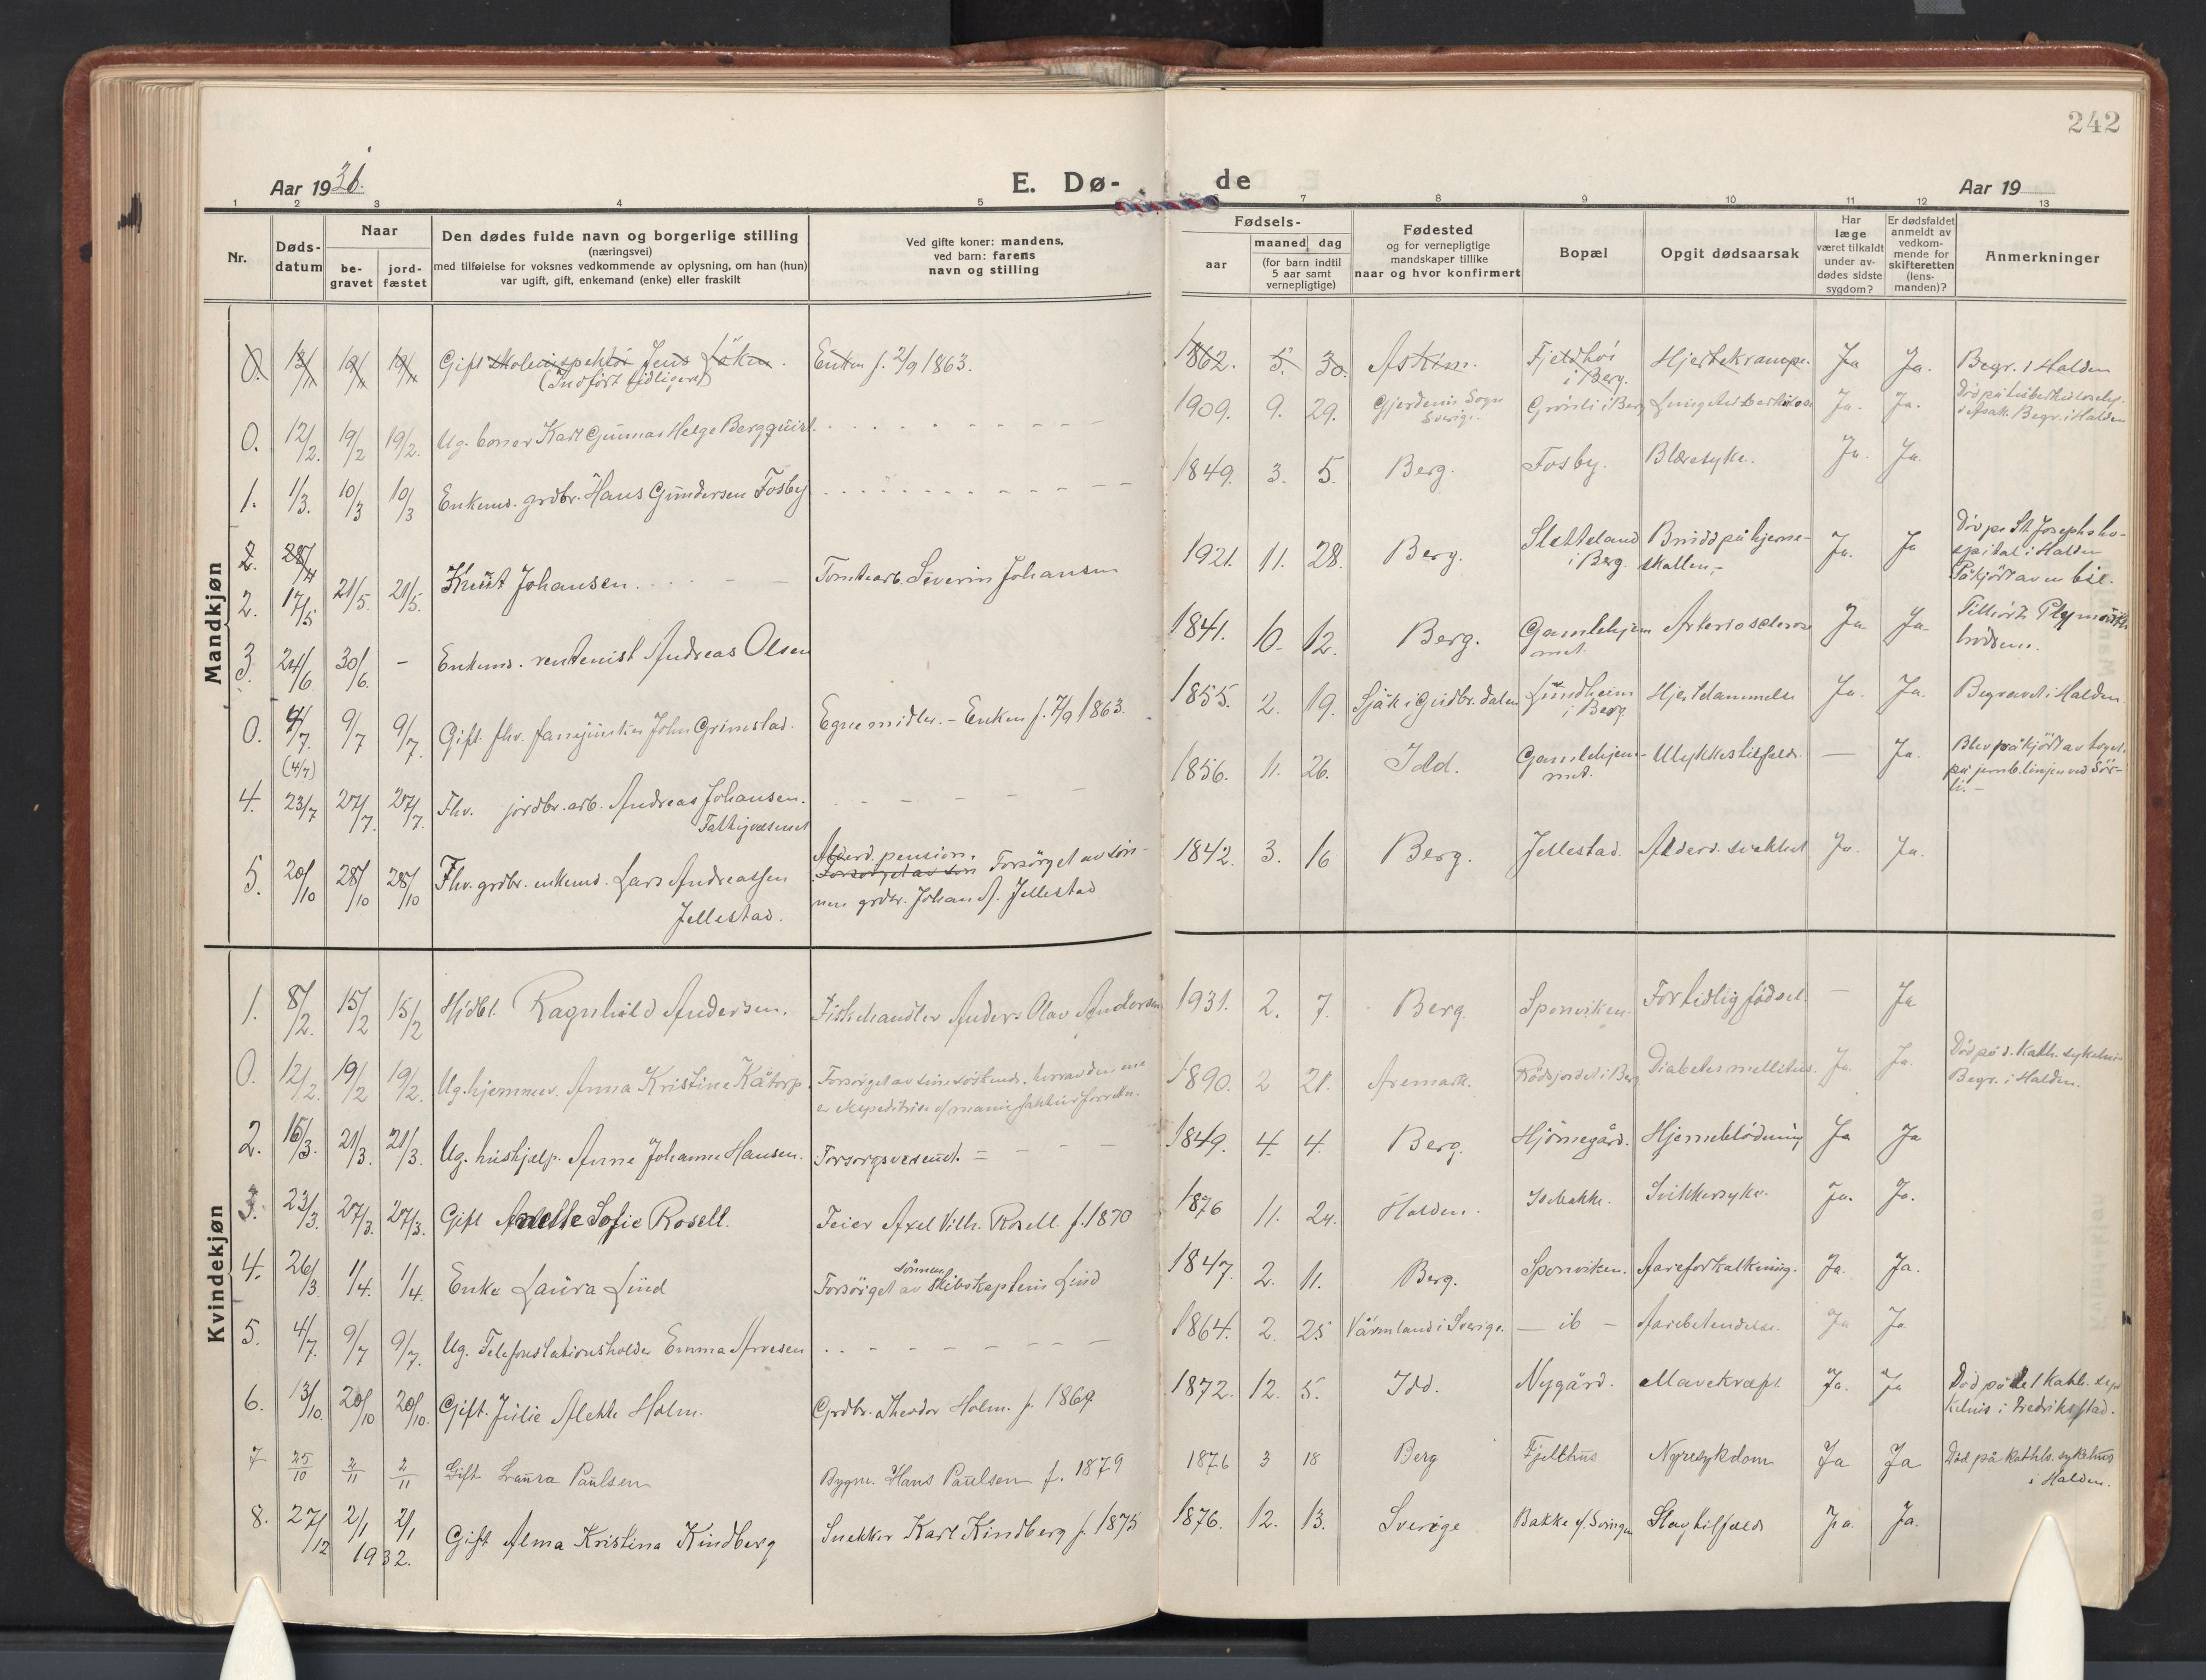 242
Aar 1931.
E. Dø- de
Aar 19
1 2 3 4 5 7 8 9 10 11 12 13
Nr.
Døds-
datum
Naar
be-
gravet
jord-
fæstet
Den dødes fulde navn og borgerlige stilling
(næringsvei)
med tilføielse for voksnes vedkommende av oplysning, om han (hun)
var ugift, gift, enkemand (enke) eller fraskilt
Ved gifte koner: mandens,
ved barn: farens
navn og stilling
Fødsels-
aar
maaned dag
(for barn indtil
5 aar samt
vernepligtige)
Fødested
og for vernepligtige
mandskaper tillike
naar og hvor konfirmert
Bopæl
Opgit dødsaarsak
Har
læge
været tilkaldt
under av-
dødes sidste
sygdom?
Er dødsfaldet
anmeldt av
vedkom-
mende for
skifteretten
(lens-
manden)?
Anmerkninger
Mandkjøn
0. 13/11 19/11 19/11 Gift skoleinspektör Jens Löken. Enken f. 2/9 1863. 1862. 5. 30. Askim. Fjeldhöi Hjertekrampe. Ja Ja. Begr. i Halden
(Indført tidligere) i Berg.
0. 12/2. 19/2 19/2. Ug. Karl Gunnar Helge Bergquist. 1909. 9. 29. Gjerdems Sogn Grönli i Berg Lungetuberkulose Ja. Ja. Død på
Sverige. i Asak. Begr. i Halden
1. 1/3. 10/3 10/3 Enkemd. grdbr. Hans Gundersen Fosby 1849. 3. 5. Berg. Fosby. Blæresyke. Ja. Ja.
2. 28/4
2. 17/5 21/5. 21/5. Knut Johansen. Tomtearb. Severin Johansen 1921. 11. 28. Berg. Sletteland Brudd på hjerne- Ja. Ja Död på St. Josephsho-
i Berg. skallen,- spital i Halden
Påkjört av en bil.
3. 24/6 30/6. - Enkemd. rentenist Andreas Olsen 1841. 10. 12. Berg. Gamlehjem Arteriosclerose Ja Ja Tilhört Plymouth
met. brödrene.
0. 4/7. 9/7 9/7. Gift. fhv. fanejunker John Grimstad. Egne midler. - Enken f. 7/9 1863. 1855. 2. 19. Sjåk i Gudbr.dalen Lundheim Hjertelammelse Ja. Ja. Begravet i Halden
(4/7) i Berg
4. 23/7 27/7. 27/7. Fhv. jordbr.arb. Andreas Johansen. 1856. 11. 26. Idd. Gamlehjem- Ulykkestilfælde. — Ja. Blev påkjört av toget
Fattigvæsenet met. på jernb.linjen ved Sör-
li. -
5. 20/10 28/10 28/10 Fhv. grdbr. enkemd. Lars Andreassen Alderd. pension. Forsörget av sön- 1842. 3. 16 Berg. Jellestad. Alderd. svakhet Ja. Ja.
Jellestad. Forsörget av sön
nen grdbr. Johan A. Jellestad
Kvindekjøn
1. 8/2. 15/2 15/2 Hjdbt. Ragnhild Andersen. Fiskehandler Anders Olav Andersen 1931. 2. 7. Berg. Sponviken. For tidlig födsel. — Ja
0. 12/2. 19/2 19/2. Ug. hjemmev. Anna Kristine Kåtorp. Forsörget av sine söskende, hvorav den ene 1890. 2 21. Aremark. Rödsjordet i Berg Diabetes mellitus. Ja. Ja. Död på d. kath. sykehus
er ekspeditrise i manufakturforretn. Begr. i Halden.
2. 15/3. 21/3. 21/3. Ug. hushjælp. Anne Johanne Hansen. Forsorgsvesenet. 1849. 4. 4. Berg. Hjörnegård. Hjerneblödning Ja Ja
3. 23/3. 27/3. 27/3. Gift Anette Sofie Rosell. Feier Axel Vilh. Rosell f. 1870 1876 11. 24. Halden. Isebakke. Sukkersyke. Ja. Ja.
4. 26/3 1/4. 1/4. Enke Laura Lind Forsörget av sönnen skibskaptein Lind 1847. 2. 11. Berg. Sponviken. Aareforkalkning. Ja. Ja.
5. 4/7. 9/7 9/7. Ug. Telefonstationsholder Emma Arvesen 1864. 2. 25 Värmland i Sverige. — ib — Aarebetendelse. Ja Ja
6. 13/10. 20/10 20/10. Gift. Julie Alette Holm. Grdbr. Theodor Holm. f. 1869 1872. 12. 5. Idd. Nygård. Mavekræft. Ja. Ja Död på det kath. sy-
kehus i Fredrikstad.
7 25/10 2/11 2/11 Gift Laura Paulsen Bygm. Hans Paulsen f. 1879 1876 3 18 Berg Fjellhus Nyresykdom Ja Ja Död på kathls. sykehus
i Halden.
8. 27/12 2/1 2/1 Gift Alma Kristina Kindberg Snekker Karl Kindberg f. 1875 1876. 12. 13. Sverige Bakke i/ Svingen Slagtilfælde Ja. Ja.
1932.